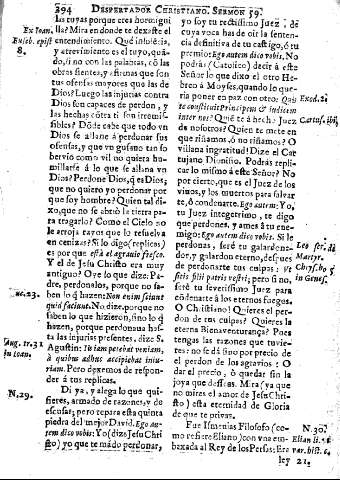 394 DESPERTADOR CHRISTIANO. SERMON 59.
las tuyas porque eres hormigui
lla? Mira en donde te dexaste el
entendimiento. Que insolēcia,
y atrevimiento es el tuyo, quā-
do, si no con las palabras, cō las
obras sientes, y afirmas que son
tus ofensas mayores que las de
Dios? Luego las injurias contra
Dios son capaces de perdon, y
las hechas cōtra ti son irremissi-
bles? Dōde cabe que todo vn
Dios se allane à perdonar sus
ofensas, y que vn gusano tan so
bervio como vil no quiera hu-
millarse á lo que se allana vn
Dios? Perdone Dios, q̄ es Dios;
que no quiero yo perdonar por
que soy hombre? Quien tal di-
xo, que no se abriò la tierra pa-
ra tragarlo? Como el Cielo no
le arroja rayos que lo resuelva
en cenizas? Si lo digo (replicas)
es por que està el agravio fresco.
Y el de Jesu Christo era muy
antiguo? Oye lo que dize: Pa-
dre, perdonalos, porque no sa-
ben lo q̄ hazen: Non enim sciunt
quid faciunt. No dize, porque no
saben lo que hizieron, sino lo q̄
hazen, porque perdonaua has-
ta las injurias presentes, dize S.
Agustin: Iā tam petebat veniam,
à quibus adhuc accipiebat iniu-
riam. Pero dexemos de respon-
der à tus replicas.
Di ya, y alega lo que qui-
sieres, armado de razones, y de
escusas; pero repara esta quinta
piedra del mejor David. Ego au-
tem dico vobis: Yo (dize Jesu Chri
sto) yo que te mãdo perdonar,
Ex Ioan.
Euseb. epist
8.
Luc. 23.
Aug. tr. 31
in Ioan.
N. 29.
yo soy tu rectissimo Juez, de
cuya voca has de oìr la senten-
cia definitiva de tu castigo, ó tu
premio: Ego autem dico vobis. No
podràs (Catolico) decir à este
Señor lo que dixo el otro He-
breo à Moyses, quando lo que-
ria poner en paz con otro: Quis
te constituit Principem & iudicem
inter nos? Què te à hecho Juez
de nosotros? Quien te mete en
que riñamos, ó no riñamos? O
villana ingratitud! Dize el Car-
tujano Dionisio. Podràs repli-
car lo mismo à este Señor? No
por cierto, que es el Juez de los
vivos, y los muertos para salvar
te, ó condenarte. Ego autem: Yo,
tu Juez integerrimo, te digo
que perdones, y ames à tu ene-
migo: Ego autem dico vobis. Si le
perdonas, serè tu galardona-
dor, y galardon eterno, despues
de perdonarte tus culpas: Ut
sitis filij patris vestri; pero si no,
serè tu severissimo Juez para
cōdenarte à los eternos fuegos.
O Christiano! Quieres el per-
don de tus culpas? Quieres la
eterna Bienaventurança? Pues
tengas las razones que tuvie-
res: no se dà sino por precio de
el perdon de los agravios: O
dar el precio, ò quedar sin la
joya que desseas. Mira (ya que
no mires el amor de Jesu Chri-
sto) esta eternidad de Gloria
de que te privas.
Fue Ismenias Filosofo (co-
mo refiere Eliano) con vna em-
baxada al Rey de los Persas: Era
ley
Exod. 2.
Cartus. ibi.
Leo ser. de
Martyr.
Chryso. h.
in Genes.
N. 30.
Elian li. 1.
var. hist. c.
21.